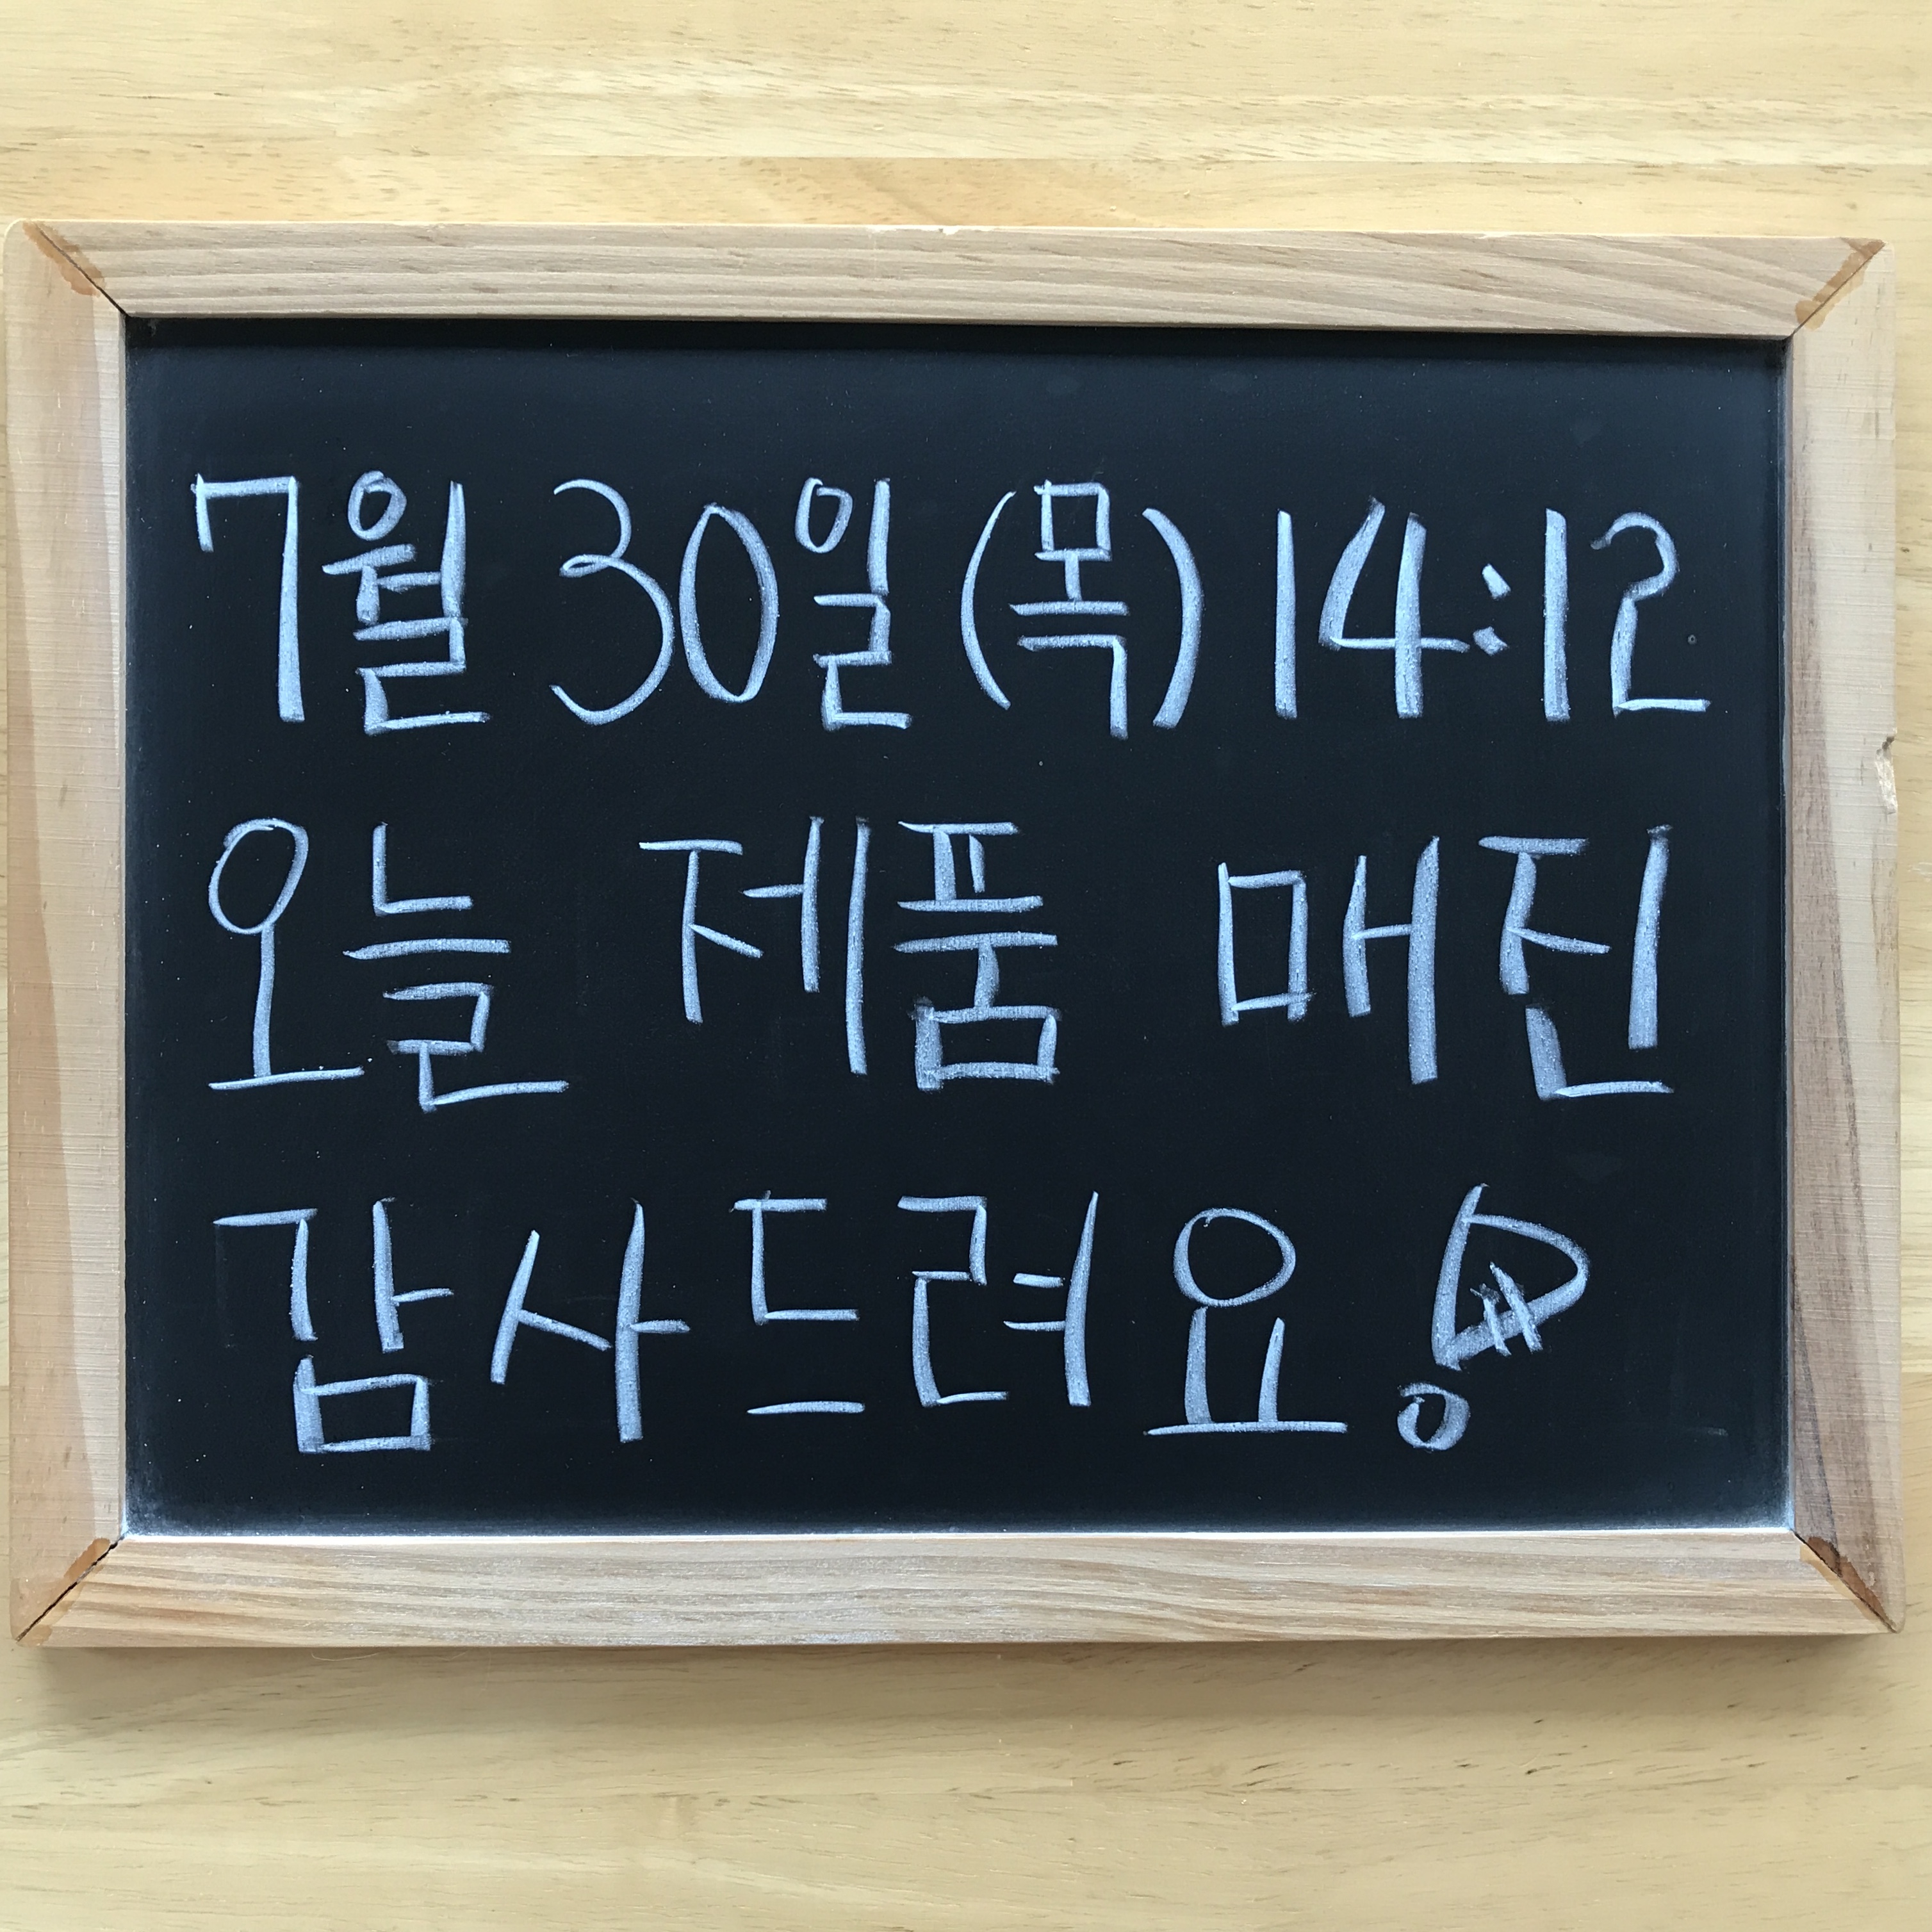 7월 30일 (목) 14:12
오늘 제품 매진
감사드려요!